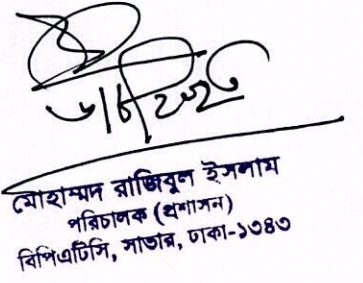 মোহাম্মদ রাজিবুল ইসলাম
পরিচালক (প্রশাসন)
বিপিএটিসি, সাভার, ঢাকা-১৩৪৩